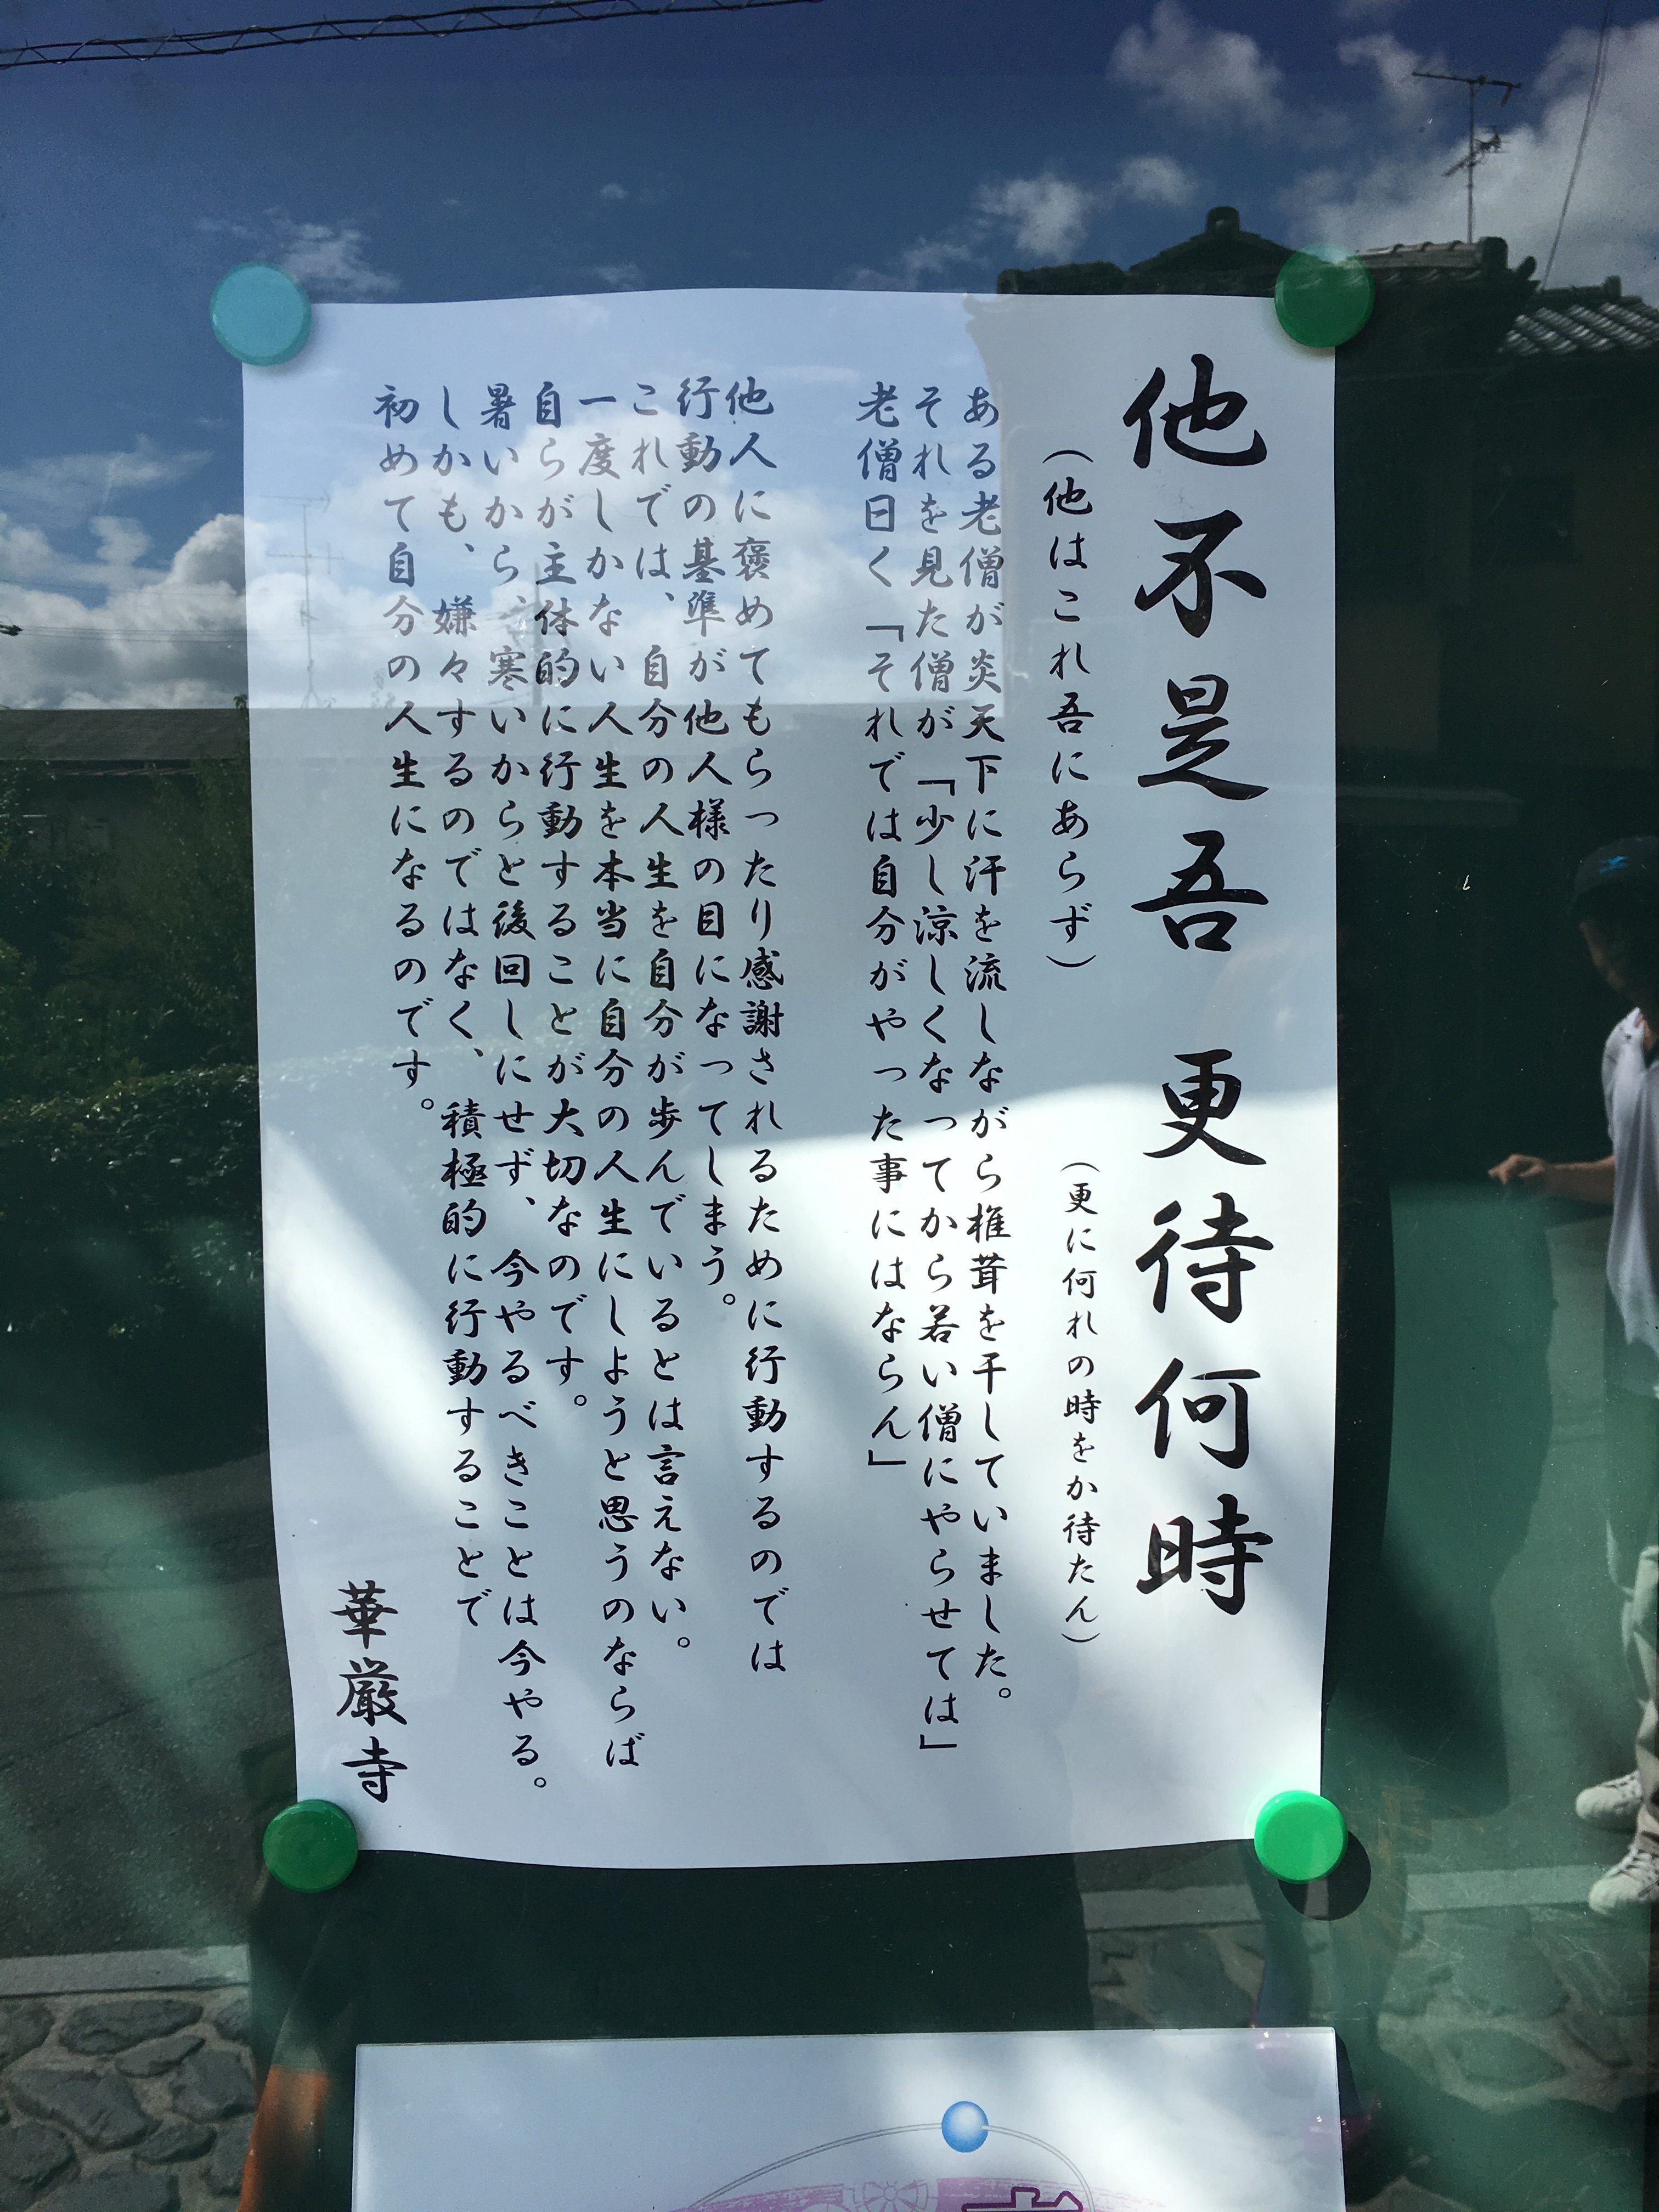 他不是吾 更待何時
(他はこれ吾にあらず)
(更に何れの時をか待たん)
ある老僧が炎天下に汗を流しながら椎茸を干していました。
それを見た僧が「少し涼しくなってから若い僧にやらせては」
老僧曰く「それでは自分がやった事にはならん」
他人に褒めてもらったり感謝されるために行動するのでは
行動の基準が他人様の目になってしまう。
これでは、自分の人生を自分が歩んでいるとは言えない。
一度しかない人生を本当に自分の人生にしようと思うのならば
自らが主体的に行動することが大切なのです。
暑いから、寒いからと後回しにせず、今やるべきことは今やる。
しかも、嫌々するのではなく、積極的に行動することで
初めて自分の人生になるのです。
華厳寺